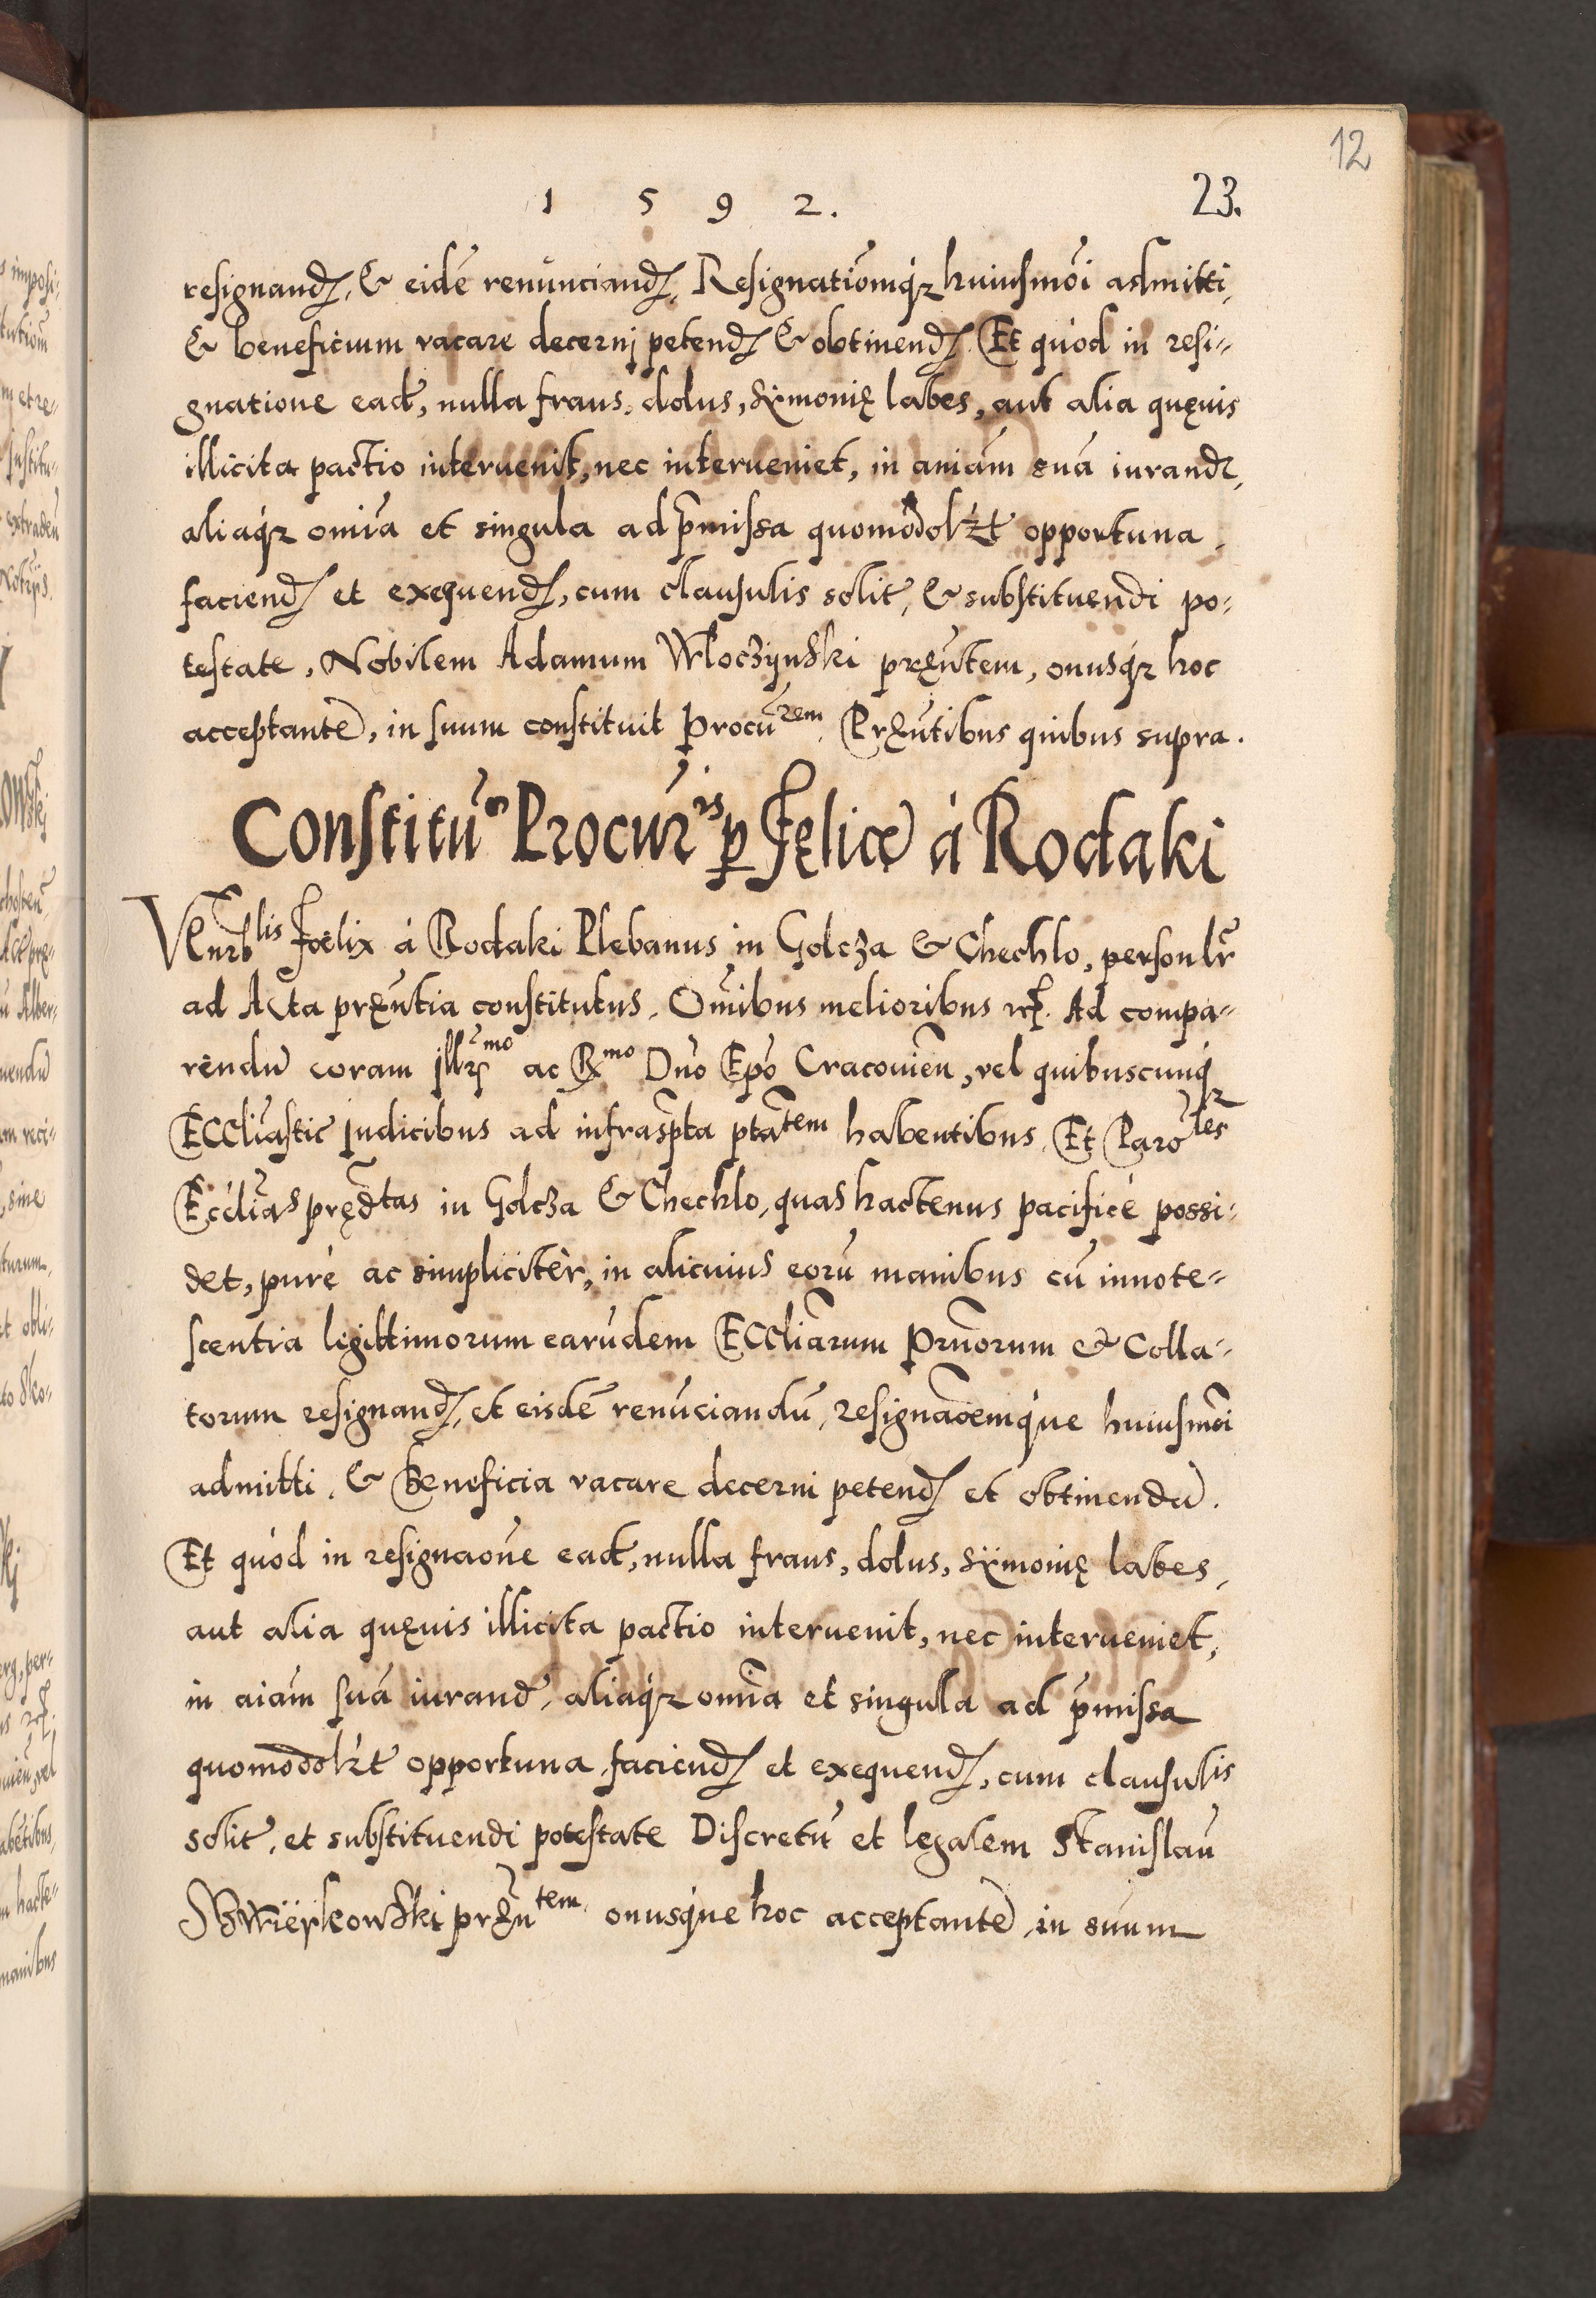 12
1592.
23.
resignand, & eidē renunciand, Resignatiōmq́ʒ huiusmōi admitti,
& beneficium vacare decernj petend & obtinend. Et quòd in resi-
gnatione ead, nulla fraus, dolus, sÿmonię labes, aut alia quęuis
illicita pactio interuenit, nec interueniet, in aniām suā iurand,
aliaq́ʒ omīa et singula ad p̄missa quomodolꝫt opportuna,
faciend et exequend, cum clausulis solit, & substituendi po-
testate, Nobilem Adamum Wloczÿnski pręn̄tem, onusq́ʒ hoc
acceptantē, in suum constituit Procūrem. Pręn̄tibus quibus supra.
Constitūo Procūris ꝑ Fęlicē à Rodaki
Venrblis Foelix à Rodaki Plebanus in Golcza & Chechlo, personlr̄
ad Acta pręn̄tia constitutus, Om̄ibus melioribus rc̄. Ad compa-
rendū coram Illr̄imo ac Rmo Dn̄o Ep̄o Cracouien̄, vel quibuscunq́ʒ
Eccliāstic judicibus ad infrasp̄ta ptātem habentibus, Et Parōles
Eccliās pręd̄tas in Golcza & Chechlo, quas hactenus pacificè possi-
det, purè ac simplicitèr, in alicuius eorū manibus cū innote-
scentia legittimorum earūdem Eccliārum Prn̄orum & Colla-
torum resignand, et eisdē renūciandū, resignāoemq́ue huiusmōi
admitti, & Beneficia vacare decerni petend et obtinendū.
Et quòd in resignaōne ead, nulla fraus, dolus, sÿmonię labes,
aut alia quęuis illicita pactio interuenit, nec interueniet,
in aiām suā iurand, aliaq́ʒ omn̄ia et singula ad p̄missa
quomodolꝫt opportuna, faciend et exequend, cum clausulis
solit, et substituendi potestate Discretū et legalem Stanislaū
pręn̄tem, onusq́ue hoc acceptantē, in suum